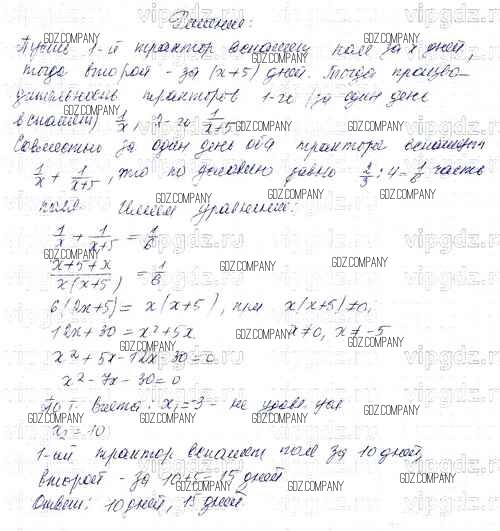 Решение:
Пусть 1-й трактор вспашет поле за x дней,
тогда второй - за (x+5) дней. Тогда произво-
дительность тракторов 1-го (за один день
вспашет) 1/x, 2-го 1/(x+5).
Совместно за один день оба трактора вспашут
1/x + 1/(x+5), что по условию равно 2/3 : 4 = 1/6 часть
поля. Имеем уравнение:
1/x + 1/(x+5) = 1/6
(x+5+x)/(x(x+5)) = 1/6
6(2x+5) = x(x+5), при x(x+5)≠0,
12x+30 = x²+5x x≠0, x≠-5
x²+5x-12x-30=0
x²-7x-30=0
По т. Виета: x₁=-3 - не удовл. усл.
x₂=10
1-ый трактор вспашет поле за 10 дней,
второй - за 10+5=15 дней
Ответ: 10 дней, 15 дней.
GDZ.COMPANY
vipgdz.ru